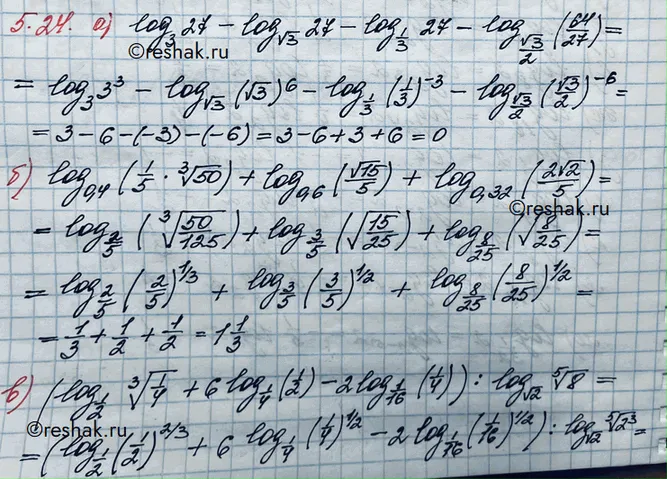 5.24. а) log₃ 27 − log_√3 27 − log_{1/3} 27 − log_{√3/2} (64/27) =
©reshak.ru
= log₃ 3³ − log_√3 (√3)⁶ − log_{1/3} (1/3)⁻³ − log_{√3/2} (√3/2)⁻⁶ =
= 3 − 6 − (−3) − (−6) = 3 − 6 + 3 + 6 = 0
б) log_{0,4} (1/5 · ∛50) + log_{0,6} (√15/5) + log_{0,32} (2√2/5) =
©reshak.ru
= log_{2/5} (∛(50/125)) + log_{3/5} (√(15/25)) + log_{8/25} (√(8/25)) =
= log_{2/5} (2/5)^{1/3} + log_{3/5} (3/5)^{1/2} + log_{8/25} (8/25)^{1/2} =
= 1/3 + 1/2 + 1/2 = 1 1/3
в) (log_{1/2} ∛(1/4) + 6 log_{1/4} (1/2) − 2 log_{1/16} (1/4)) : log_√2 ⁵√8 =
©reshak.ru
= (log_{1/2} (1/2)^{2/3} + 6 log_{1/4} (1/4)^{1/2} − 2 log_{1/16} (1/16)^{1/2}) : log_√2 ⁵√2³ =